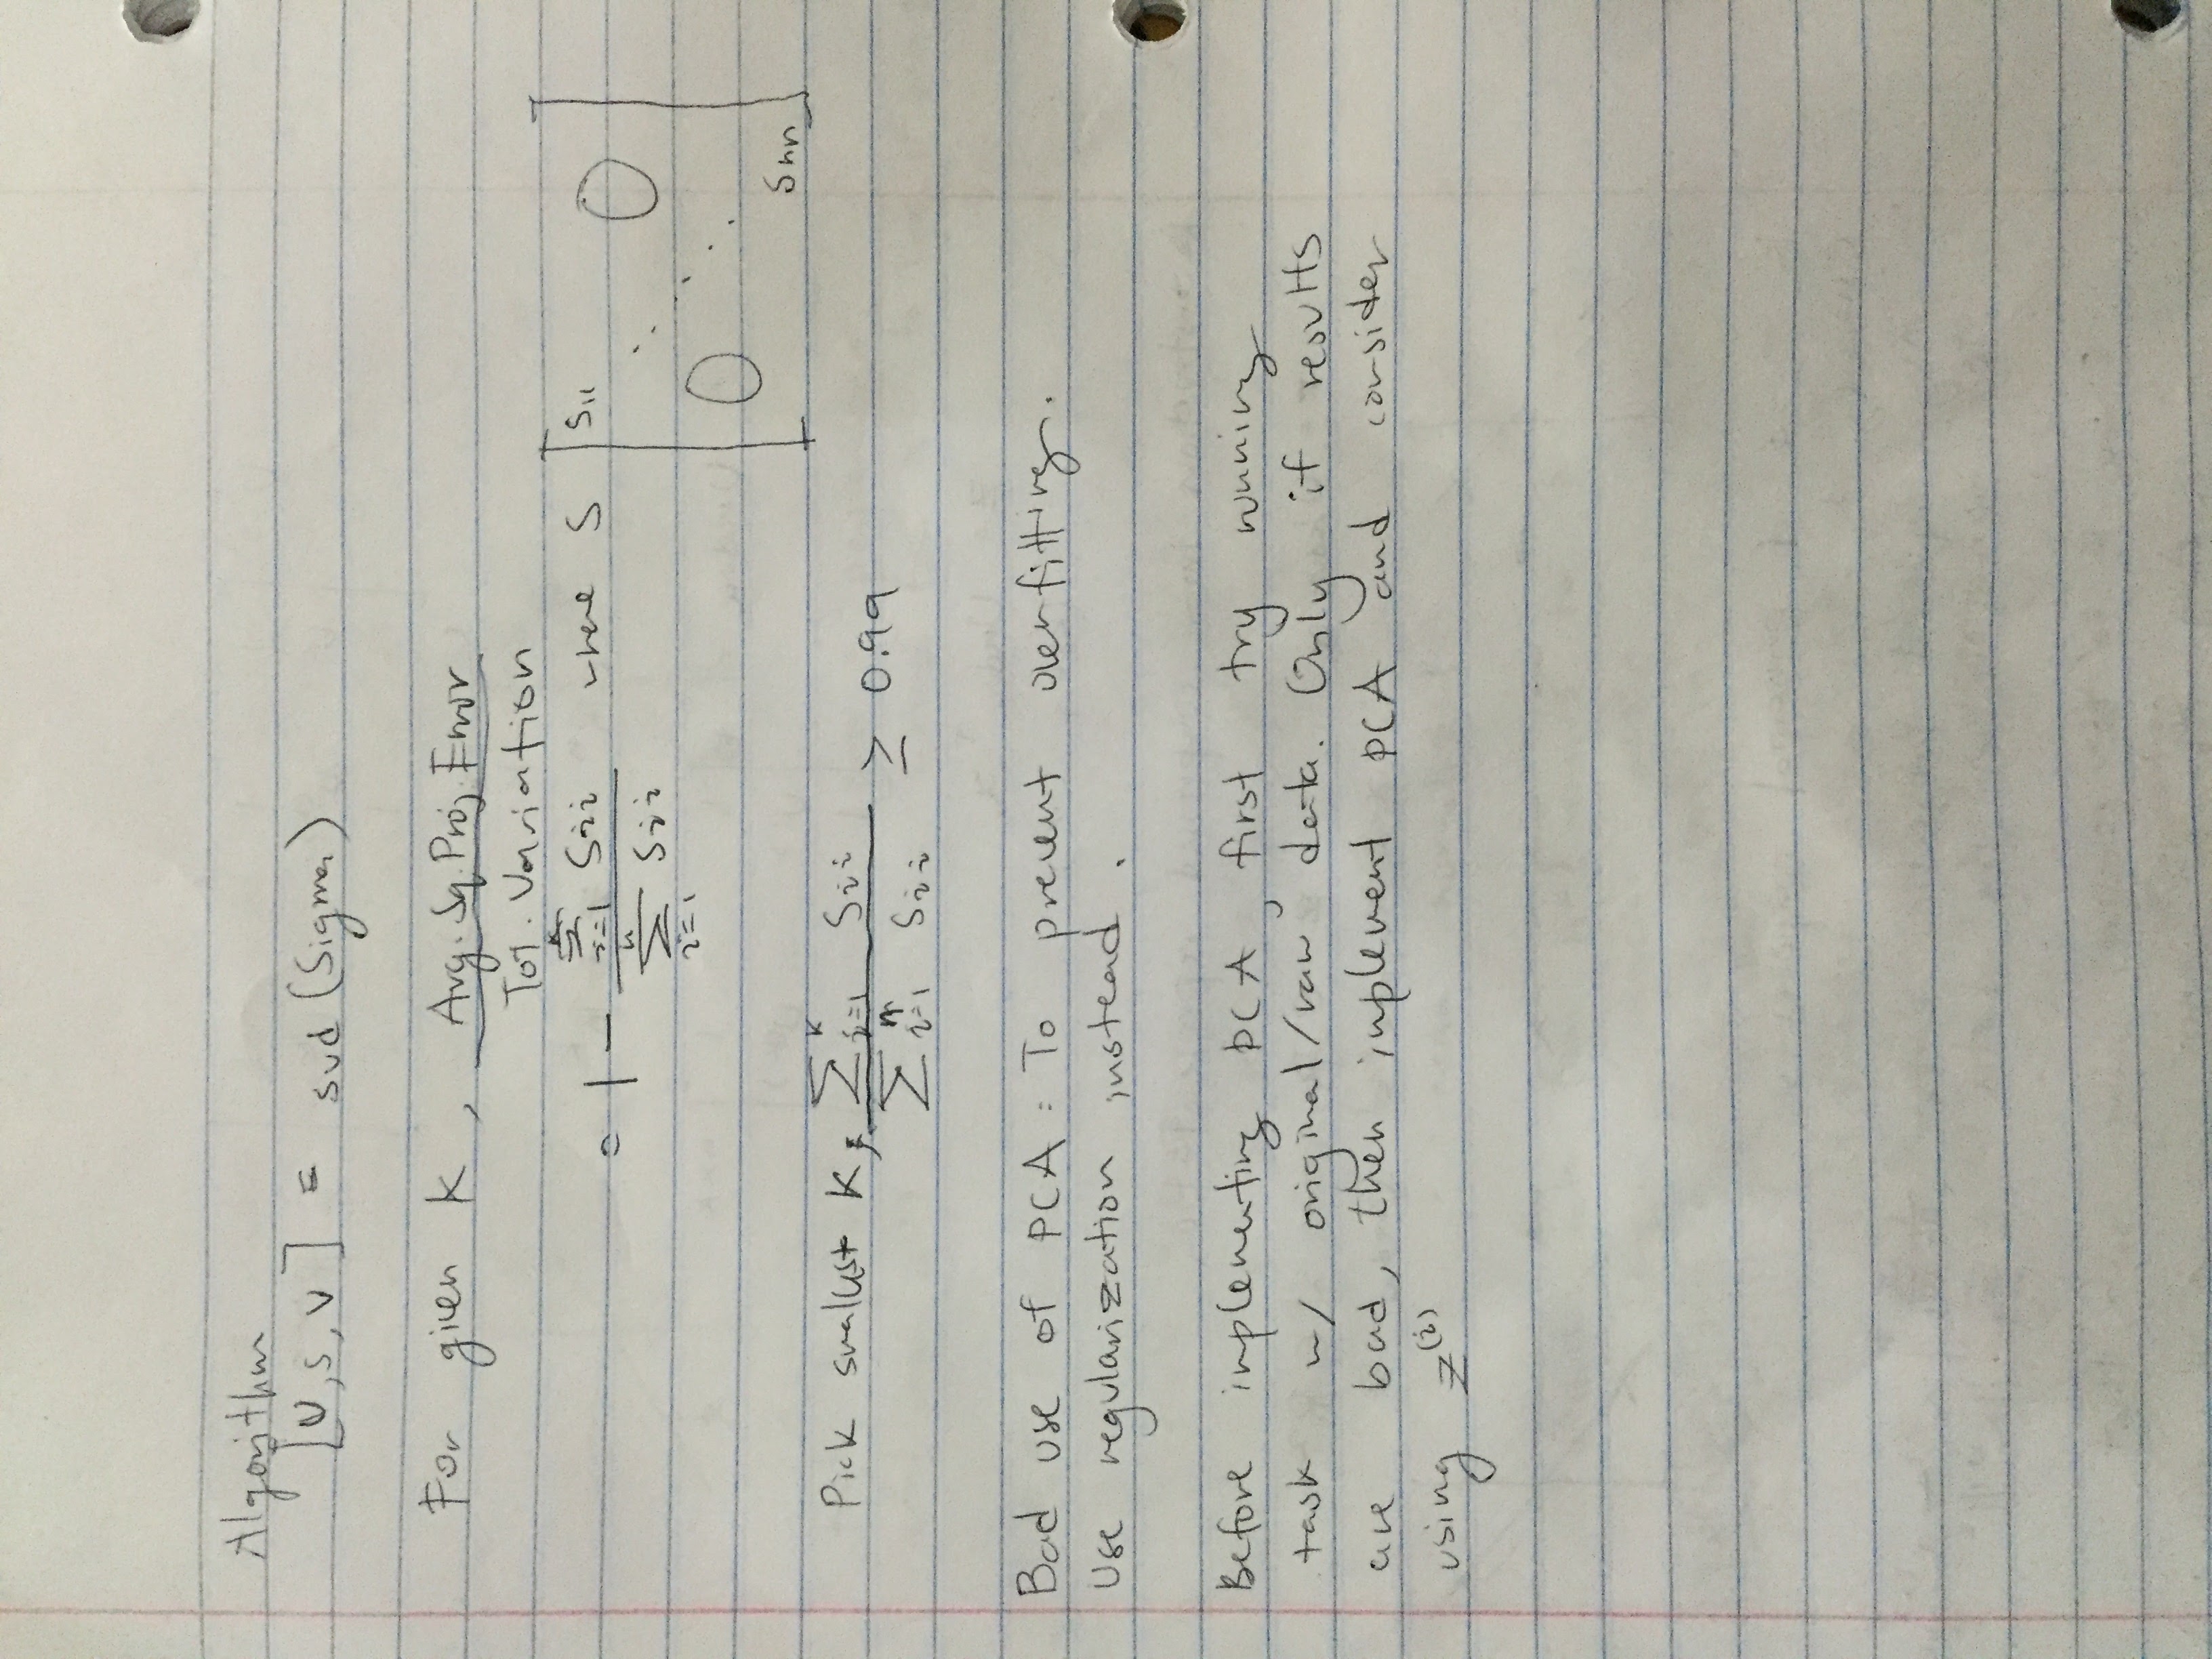 Algorithm
[U, S, V] = svd (Sigma)
For given K, Avg. Sq. Proj. Error
Tot. Variation
= 1 - \frac{\sum_{i=1}^{k} S_{ii}}{\sum_{i=1}^{n} S_{ii}} where S [S_{11} 0 ⋱ 0 S_{nn}]
Pick smallest K, \frac{\sum_{i=1}^{k} S_{ii}}{\sum_{i=1}^{n} S_{ii}} ≥ 0.99
Bad use of PCA : To prevent overfitting.
Use regularization instead.
Before implementing PCA, first try running
task w/ original/raw data. Only if results
are bad, then implement PCA and consider
using z^{(i)}